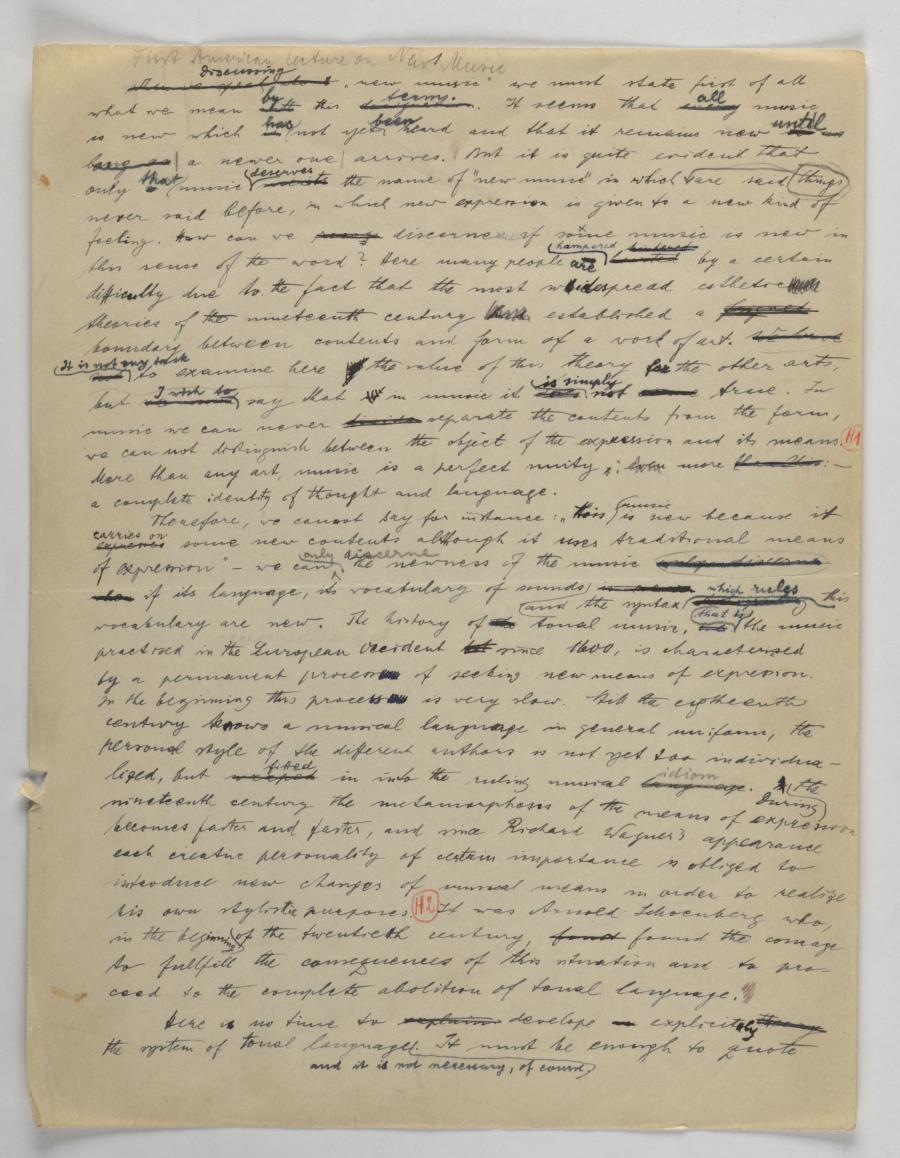 First American lecture on New Music
discussing
"new music" we must state first of all
what we mean by this term. It seems that all music
is new which has not yet been heard and that it remains new until
a newer one arrives. But it is quite evident that
only that music deserves the name of "new music" in which are said things
never said before, in which new expression is given to a new kind of
feeling. How can we discerne if some music is new in
this sense of the word? Here many people are hampered by a certain
difficulty due to the fact that the most widespread esthetic
theories of the nineteenth century established a
boundary between contents and form of a work of art.
It is not my task
to examine here the value of this theory for the other arts,
but I wish to say that in music it is simply not true. In
music we can never separate the contents from the form,
we can not distinguish between the object of the expression and its means. H1
More than any art, music is a perfect unity, even more : –
a complete identity of thought and language.
Therefore, we cannot say for instance: "this music is new because it
carries on some new contents although it uses traditional means
of expression" – we can only discerne the newness of the music
if its language, its vocabulary of sounds which rules this
and the syntax
vocabulary are new. The history of tonal music, that is the music
practised in the European Occident since 1600, is characterised
by a permanent process of seeking new means of expression.
In the beginning this process is very slow. Till the eighteenth
century knows a musical language in general uniform, the
personal style of the different authors is not yet too individua-
lized, but fitted in into the ruling musical idiom. During the
nineteenth century the metamorphoses of the means of expression
becomes faster and faster, and since Richard Wagner's appearance
each creative personality of certain importance is obliged to
introduce new changes of musical means in order to realize
his own stylistic purposes. H2 It was Arnold Schoenberg who,
in the beginning of the twentieth century, found the courage
to fullfill the consequences of this situation and to pro-
ceed to the complete abolition of tonal language.
Here is no time to develope explicitely
the system of tonal language. It must be enough to quote
and it is not necessary, of course,